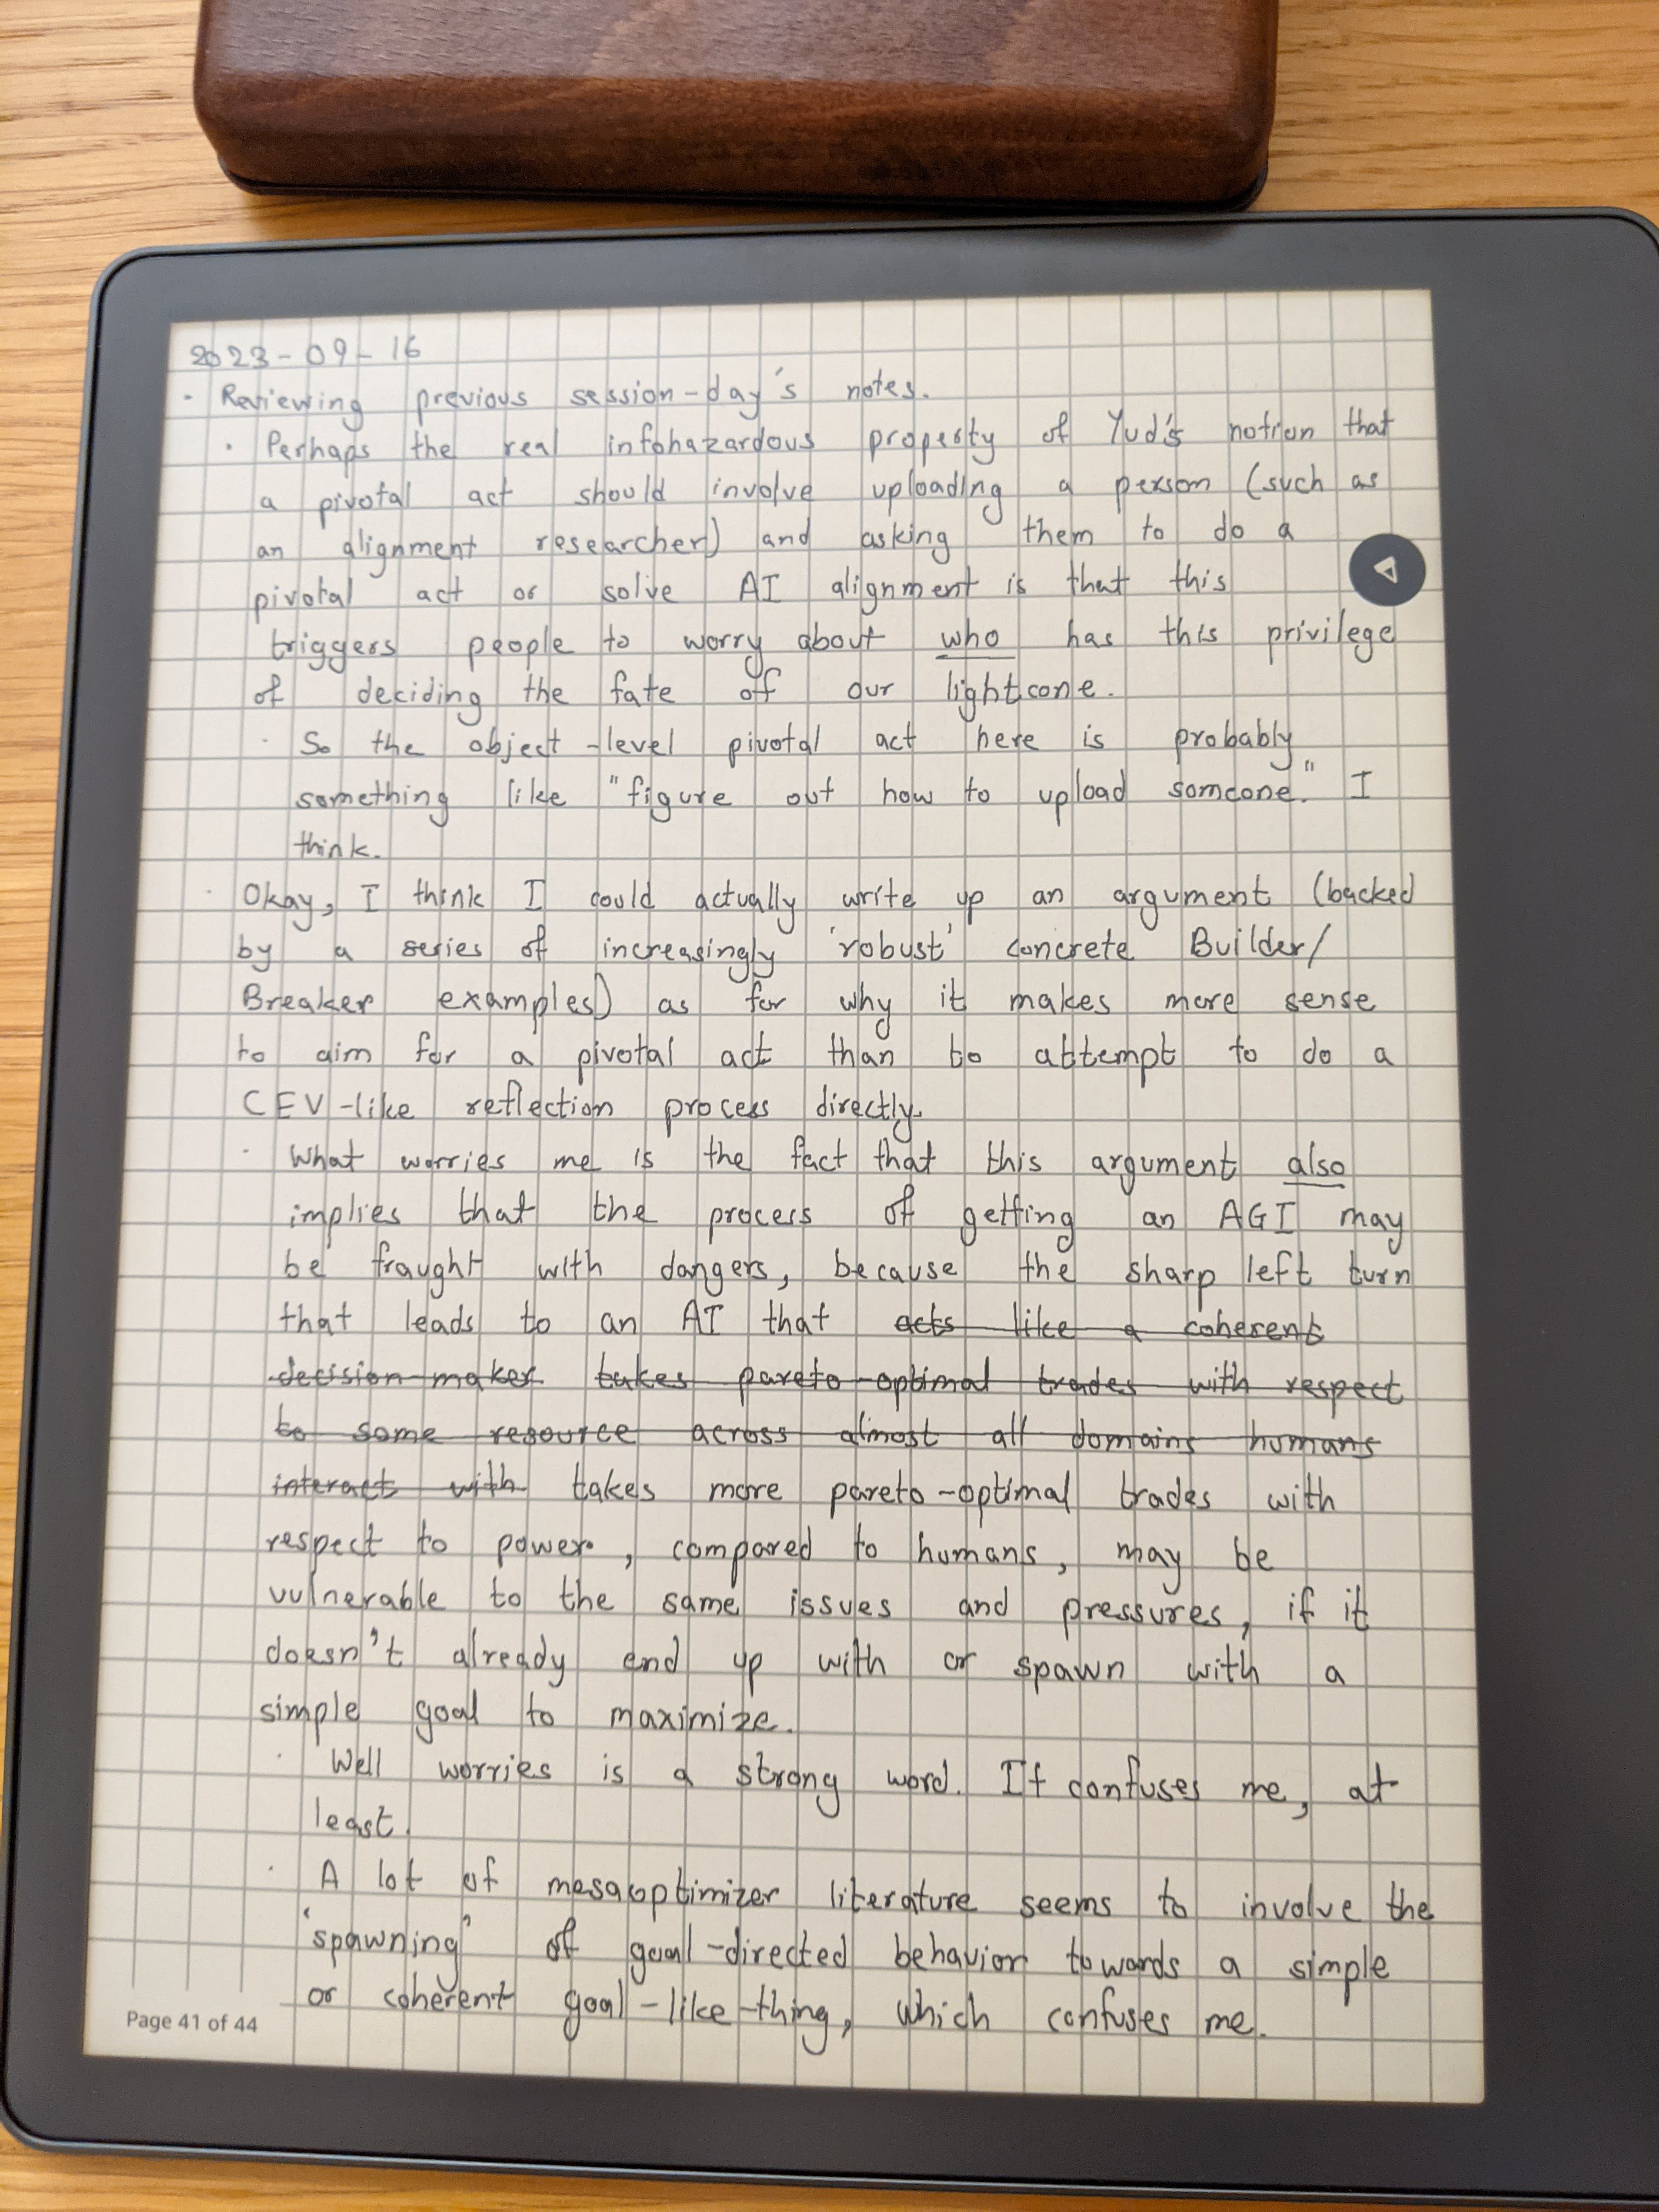 2023-09-16
· Reviewing previous session-day's notes.
· Perhaps the real infohazardous property of Yud's notion that
a pivotal act should involve uploading a person (such as
an alignment researcher) and asking them to do a
pivotal act or solve AI alignment is that this
triggers people to worry about who has this privilege
of deciding the fate of our lightcone.
· So the object-level pivotal act here is probably
something like "figure out how to upload someone." I
think.
· Okay, I think I could actually write up an argument (backed
by a series of increasingly 'robust' concrete Builder/
Breaker examples) as for why it makes more sense
to aim for a pivotal act than to attempt to do a
CEV-like reflection process directly.
· What worries me is the fact that this argument also
implies that the process of getting an AGI may
be fraught with dangers, because the sharp left turn
that leads to an AI that acts like a coherent
decision-maker takes pareto-optimal trades with respect
to some resource across almost all domains humans
interact with takes more pareto-optimal trades with
respect to power, compared to humans, may be
vulnerable to the same issues and pressures, if it
doesn't already end up with or spawn with a
simple goal to maximize.
· Well worries is a strong word. It confuses me, at
least.
· A lot of mesaoptimizer literature seems to involve the
'spawning' of goal-directed behavior towards a simple
or coherent goal-like-thing, which confuses me.
Page 41 of 44